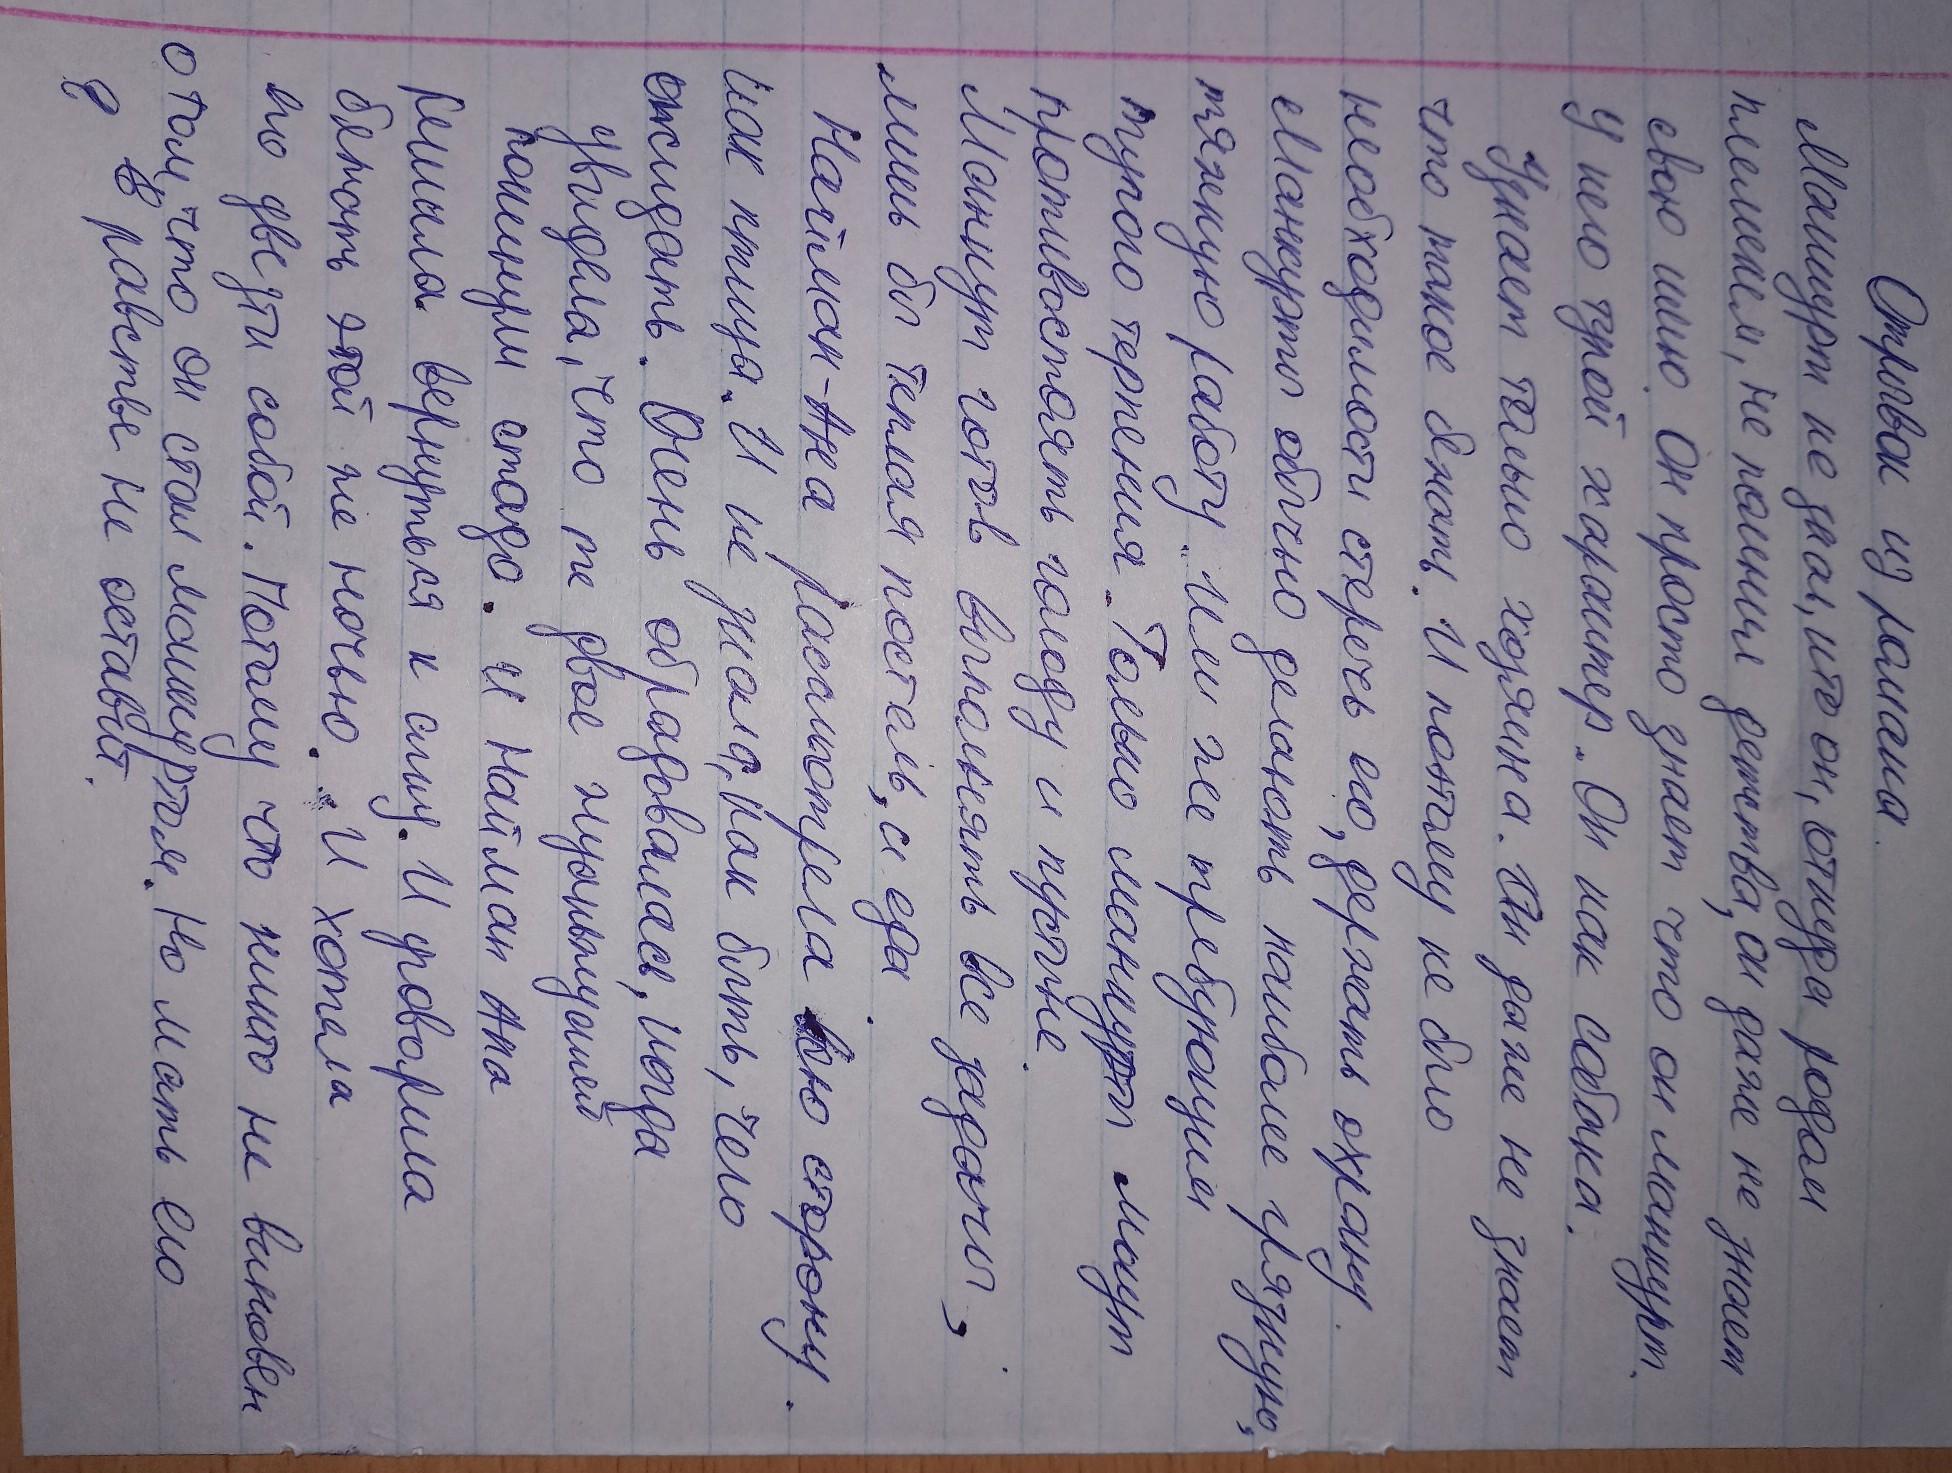 Отрывок из романа.
Манкурт не знал, кто он, откуда родом
племенем, не помнил детства, он даже не знает
свою имю. Он просто знает что он манкурт.
У него тупой характер. Он как собака.
Узнает только хозяина. Он даже не знает
что такое бжать. И потому не было
необходимости стеречь его, держать охрану.
Манкурты обычно делають наиболее грязную,
тяжкую работу. Или же требующим
тупого терпения. Только манкурт могут
противостоять голоду и пустыне.
Манкурт готов выполнять все задачи,
лишь бы теплая постель, и еда.
Найман-Ана рассмотрела вою сторону.
Как птица. И не знала, как быть, чего
ожидать. Очень обрадовалась, когда
увидела, что те двое жуаньжуаней
покинули стадо. И Найман Ана
решила вернуться к сину. И уговорила
бежать этой же ночью. И хотела
его двезти собой. Потому что никто не виновен
о том, что он стал манкуртом. Но мать его
в рабстве не оставит.